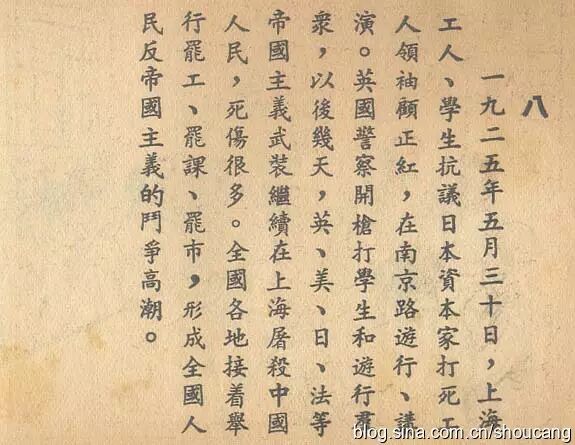 八
一九二五年五月三十日，上海
工人、學生抗議日本資本家打死工
人領袖顧正紅，在南京路遊行、講
演。英國警察開槍打學生和遊行羣
衆，以後幾天，英、美、日、法等
帝國主義武裝繼續在上海屠殺中國
人民，死傷很多。全國各地接着舉
行罷工、罷課、罷市，形成全國人
民反帝國主義的鬥爭高潮。
blog.sina.com.cn/shoucang